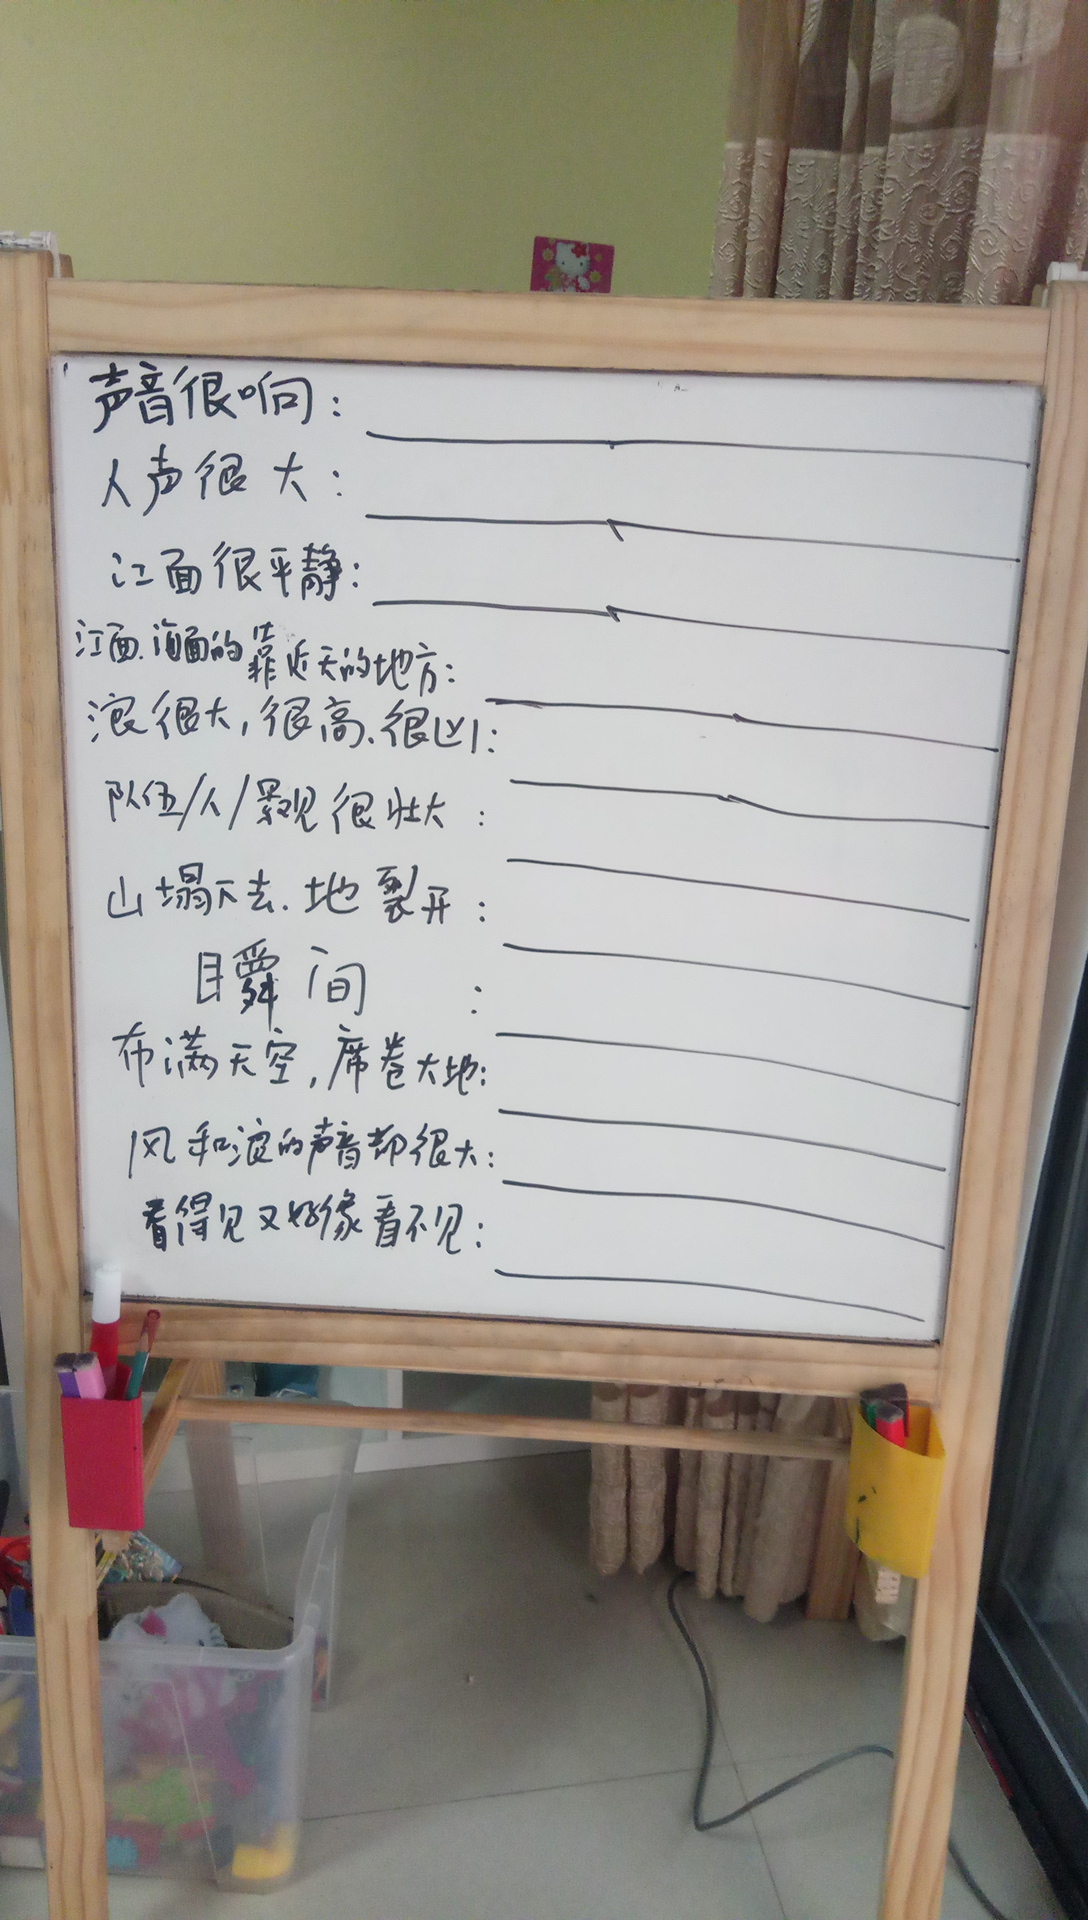 声音很响：
人声很大：
江面很平静：
江面、海面的靠近天的地方：
浪很大，很高、很凶：
队伍/人/景观很壮大：
山塌下去、地裂开：
瞬间：
布满天空，席卷大地：
风和浪的声音却很大：
看得见又好像看不见：